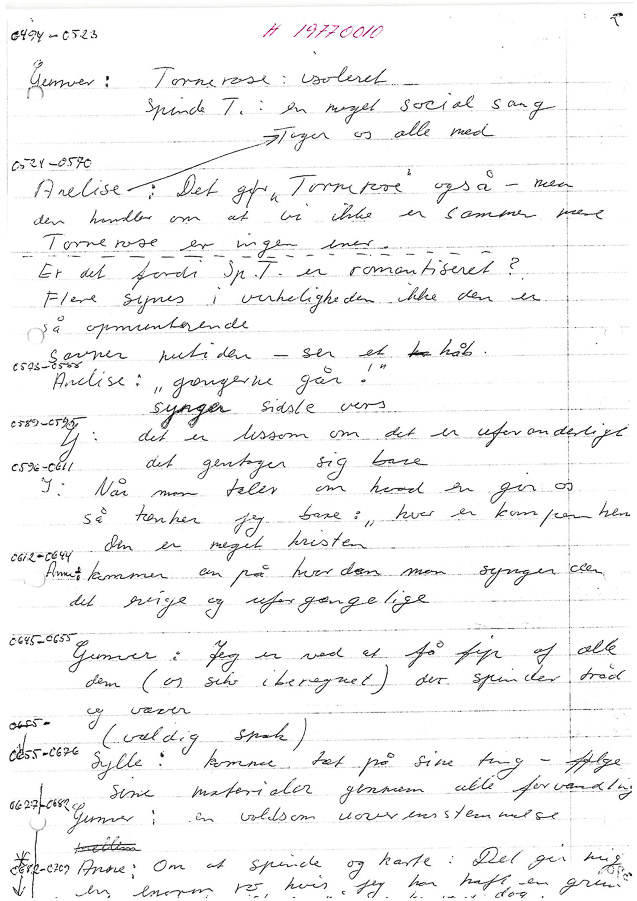 0494-0523
H 19770010
Gunver: Tornerose: isoleret -
Spinde T.: en meget social sang
Tager os alle med
0524-0570
Anelise: Det gør „Tornerose" også - men
den handler om at vi ikke er sammen mere
Tornerose er ingen ener.
Er det fordi Sp.T. er romantiseret?
Flere synes i virkeligheden ikke den er
så opmuntrende
Savner nutiden - ser et håb.
Anelise: „gængerne går!"
synger sidste vers
0589-0595
G: det er lissom om det er uforanderligt
0596-0611
det gentager sig bare
I: Når man taler om hvad en gir os
så tænker jeg bare: „ hvor er kampen hen
den er meget kristen
0612-0644
Anne: kommer an på hvordan man synger den
det evige og uforgængelige
0645-0655
Gunver: Jeg er ved at få fip af alle
dem (os selv iberegnet) der spinder tråd
og væver
0655-
(vældig spøk)
0655-0676
Sylle: komme tæt på sine ting - følge
sine materialer gennem alle forvandling
0627-0682
Gunver: en voldsom uoverensstemmelse
0682-0709
Anne: Om at spinde og karte: Det gir mig
en enorm ro, hvis jeg har haft en